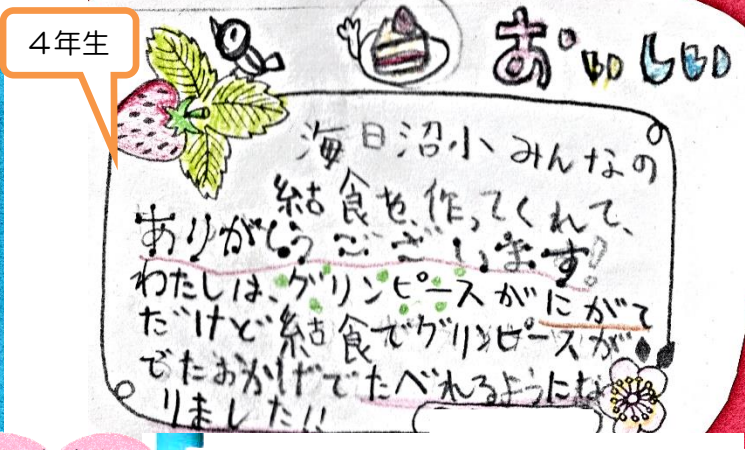 4年生
おいしい
海日沼小みんなの
結食を、作ってくれて、
ありがとうございます!
わたしは、グリンピースがにがて
だけど結食でグリンピースが
でたおかげでたべれるようにな
りました!!